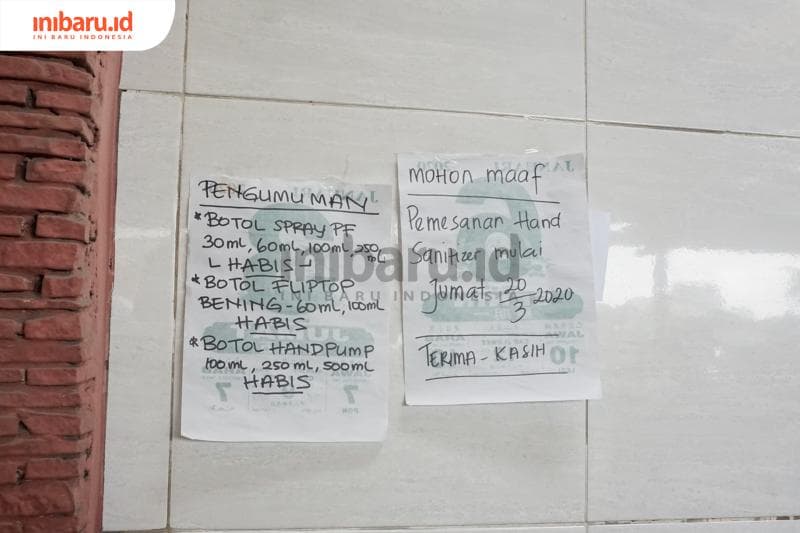 inibaru.id
INI BARU INDONESIA
PENGUMUMAN
* BOTOL SPRAY PF
30 mL, 60 mL, 100 mL 250 mL
L HABIS -
* BOTOL FLIPTOP
BENING - 60 mL, 100 mL
HABIS
* BOTOL HANDPUMP
100 mL, 250 mL, 500 mL
HABIS
MOHON MAAF
Pemesanan Hand
Sanitizer mulai
Jumat 20/3 2020
TERIMA - KASIH
inibaru.id
INI BARU INDONESIA